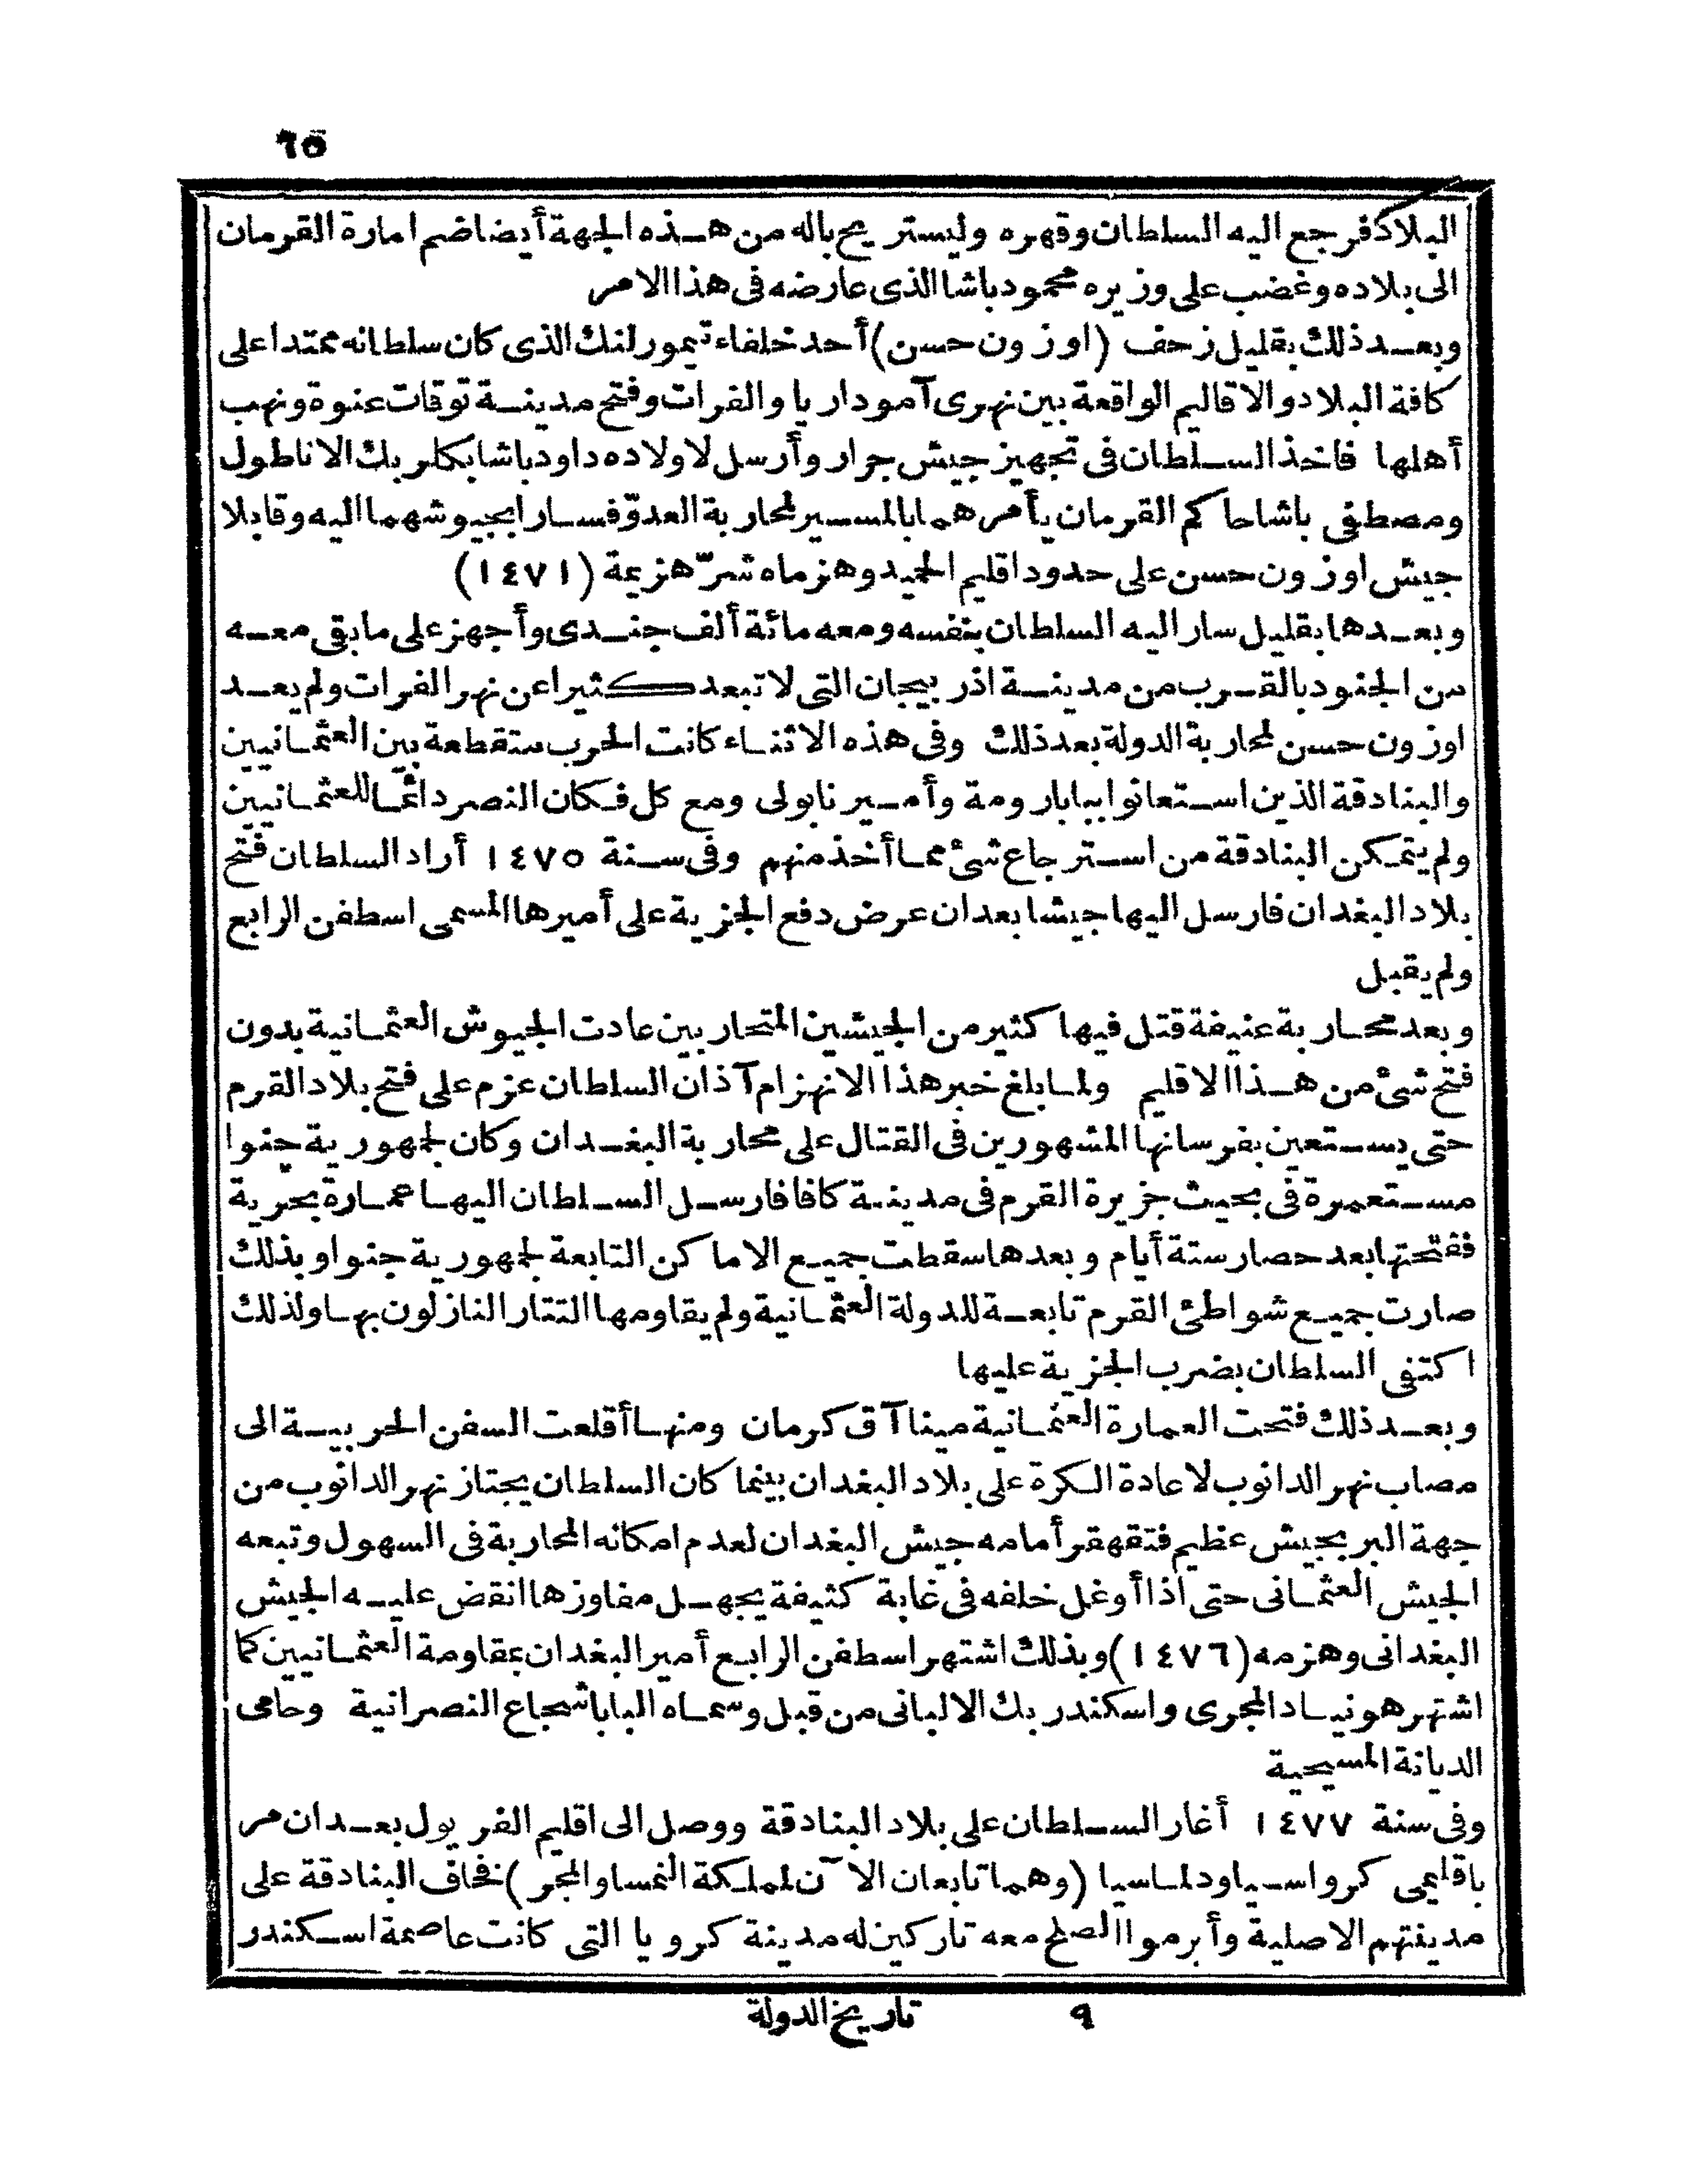 ٦٥
البلاد فرجع اليه السلطان وقهره وليستريح باله من هذه الجهة أيضا ضم امارة القرمان
الى بلاده وغضب على وزيره محمود باشا الذى عارضه فى هذا الامر
وبعد ذلك بقليل زحف (اوزون حسن) أحد خلفاء تيمور لنك الذى كان سلطانه ممتدا على
كافة البلاد والاقاليم الواقعة بين نهرى آموداريا والفرات وفتح مدينة توقات عنوة ونهب
أهلها فاخذ السلطان فى تجهيز جيش جرار وأرسل لاولاده داود باشا بكلر بك الاناطول
ومصطفى باشا حاكم القرمان يأمرهما بالمسير لمحاربة العدوّ فسارا بجيوشهما اليه وقابلا
جيش اوزون حسن على حدود اقليم الحميد وهزماه شرّ هزيمة (١٤٧١)
وبعدها بقليل سار اليه السلطان بنفسه ومعه مائة ألف جندى وأجهز على ما بقى معه
من الجنود بالقرب من مدينة اذربيجان التى لا تبعد كثيرا عن نهر الفرات ولم يعد
اوزون حسن لمحاربة الدولة بعد ذلك وفى هذه الاثناء كانت الحرب متقطعة بين العثمانيين
والبنادقة الذين استعانوا ببابا رومة وأمير نابولى ومع كل فكان النصر دائما للعثمانيين
ولم يتمكن البنادقة من استرجاع شئ مما أخذ منهم وفى سنة ١٤٧٥ أراد السلطان فتح
بلاد البغدان فارسل اليها جيشا بعد ان عرض دفع الجزية على أميرها المسمى اسطفن الرابع
ولم يقبل
وبعد محاربة عنيفة قتل فيها كثير من الجيشين المتحاربين عادت الجيوش العثمانية بدون
فتح شئ من هذا الاقليم ولما بلغ خبر هذا الانهزام آذان السلطان عزم على فتح بلاد القرم
حتى يستعين بفرسانها المشهورين فى القتال على محاربة البغدان وكان لجمهورية جنوا
مستعمرة فى بحيث جزيرة القرم فى مدينة كافا فارسل السلطان اليها عمارة بحرية
ففتحتها بعد حصار ستة أيام وبعدها سقطت جميع الاماكن التابعة لجمهورية جنوا وبذلك
صارت جميع شواطئ القرم تابعة للدولة العثمانية ولم يقاومها التتار النازلون بها ولذلك
اكتفى السلطان بضرب الجزية عليها
وبعد ذلك فتحت العمارة العثمانية مينا آق كرمان ومنها أقلعت السفن الحربية الى
مصاب نهر الدانوب لاعادة الكرة على بلاد البغدان بينما كان السلطان يجتاز نهر الدانوب من
جهة البر بجيش عظيم فتقهقر أمامه جيش البغدان لعدم امكانه المحاربة فى السهول وتبعه
الجيش العثمانى حتى اذا أوغل خلفه فى غابة كثيفة يجهل مفاوزها انقض عليه الجيش
البغدانى وهزمه (١٤٧٦) وبذلك اشتهر اسطفن الرابع أمير البغدان بمقاومة العثمانيين كما
اشتهر هونياد المجرى واسكندر بك الالبانى من قبل وسماه البابا شجاع النصرانية وحامى
الديانة المسيحية
وفى سنة ١٤٧٧ أغار السلطان على بلاد البنادقة ووصل الى اقليم الفريول بعد ان مر
باقليمى كرواسيا ودلماسيا (وهما تابعان الآن لمملكة النمسا والمجر) فخاف البنادقة على
مدينتهم الاصلية وأبرموا الصلح معه تاركين له مدينة كرويا التى كانت عاصمة اسكندر
٩ تاريخ الدولة